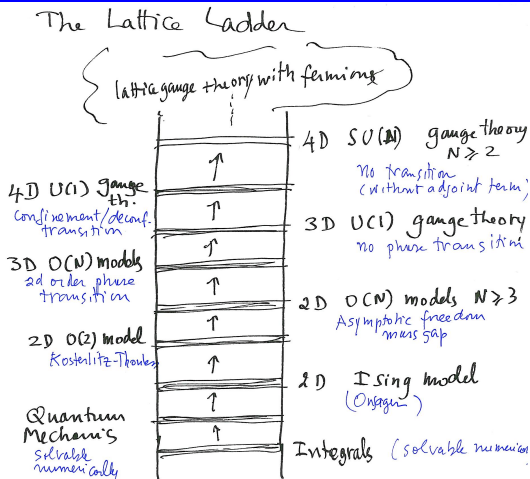 The Lattice Ladder
lattice gauge theory with fermions
4D SU(N) gauge theory
N ≥ 2
no transition
(without adjoint term)
4D U(1) gauge
th.
confinement/deconf.
transition
3D U(1) gauge theory
no phase transition
3D O(N) models
2d order phase
transition
2D O(N) models N ≥ 3
Asymptotic freedom
mass gap
2D O(2) model
Kosterlitz-Thouless
2D Ising model
(Onsager)
Quantum
Mechanics
solvable
numerically
Integrals (solvable